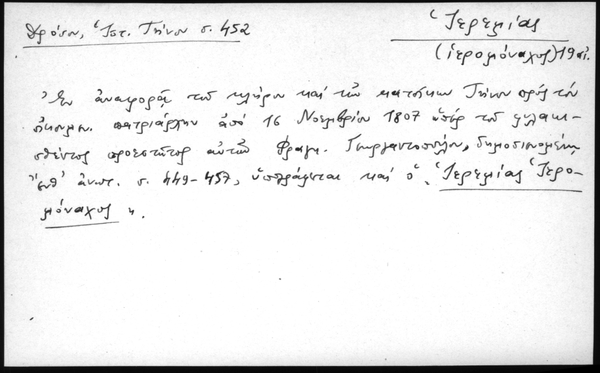 Δρόσου, Ἱστ. Τήνου σ. 452
Ἱερεμίας
(ἱερομόναχος) 19 αἰ.
Ἐν ἀναφορᾷ τοῦ κλήρου καὶ τῶν κατοίκων Τήνου πρὸς τὸν
οἰκουμ. πατριάρχην ἀπὸ 16 Νοεμβρίου 1807 ὑπὲρ τοῦ φυλακι-
σθέντος προεστῶτος αὐτῶν Φραγκ. Γεωργαντοπούλου, δημοσιευομένῃ
ἔνθ' ἀνωτ. σ. 449-457, ὑπογράφεται καὶ ὁ „Ἱερεμίας Ἱερο-
μόναχος".